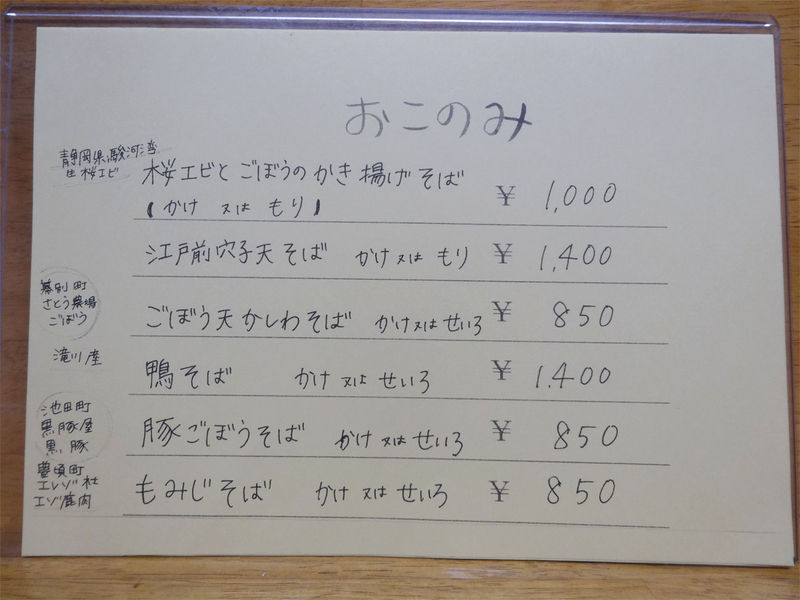 おこのみ
静岡県駿河湾
生桜エビ
桜エビとごぼうのかき揚げそば
(かけ 又は もり) ¥ 1,000
江戸前穴子天そば かけ又はもり ¥ 1,400
幕別町
さとう農場
ごぼう
ごぼう天かしわそば かけ又はせいろ ¥ 850
滝川産
鴨そば かけ又はせいろ ¥ 1,400
池田町
黒豚屋
黒豚
豚ごぼうそば かけ又はせいろ ¥ 850
豊頃町
エレゾ社
エゾ鹿肉
もみじそば かけ又はせいろ ¥ 850